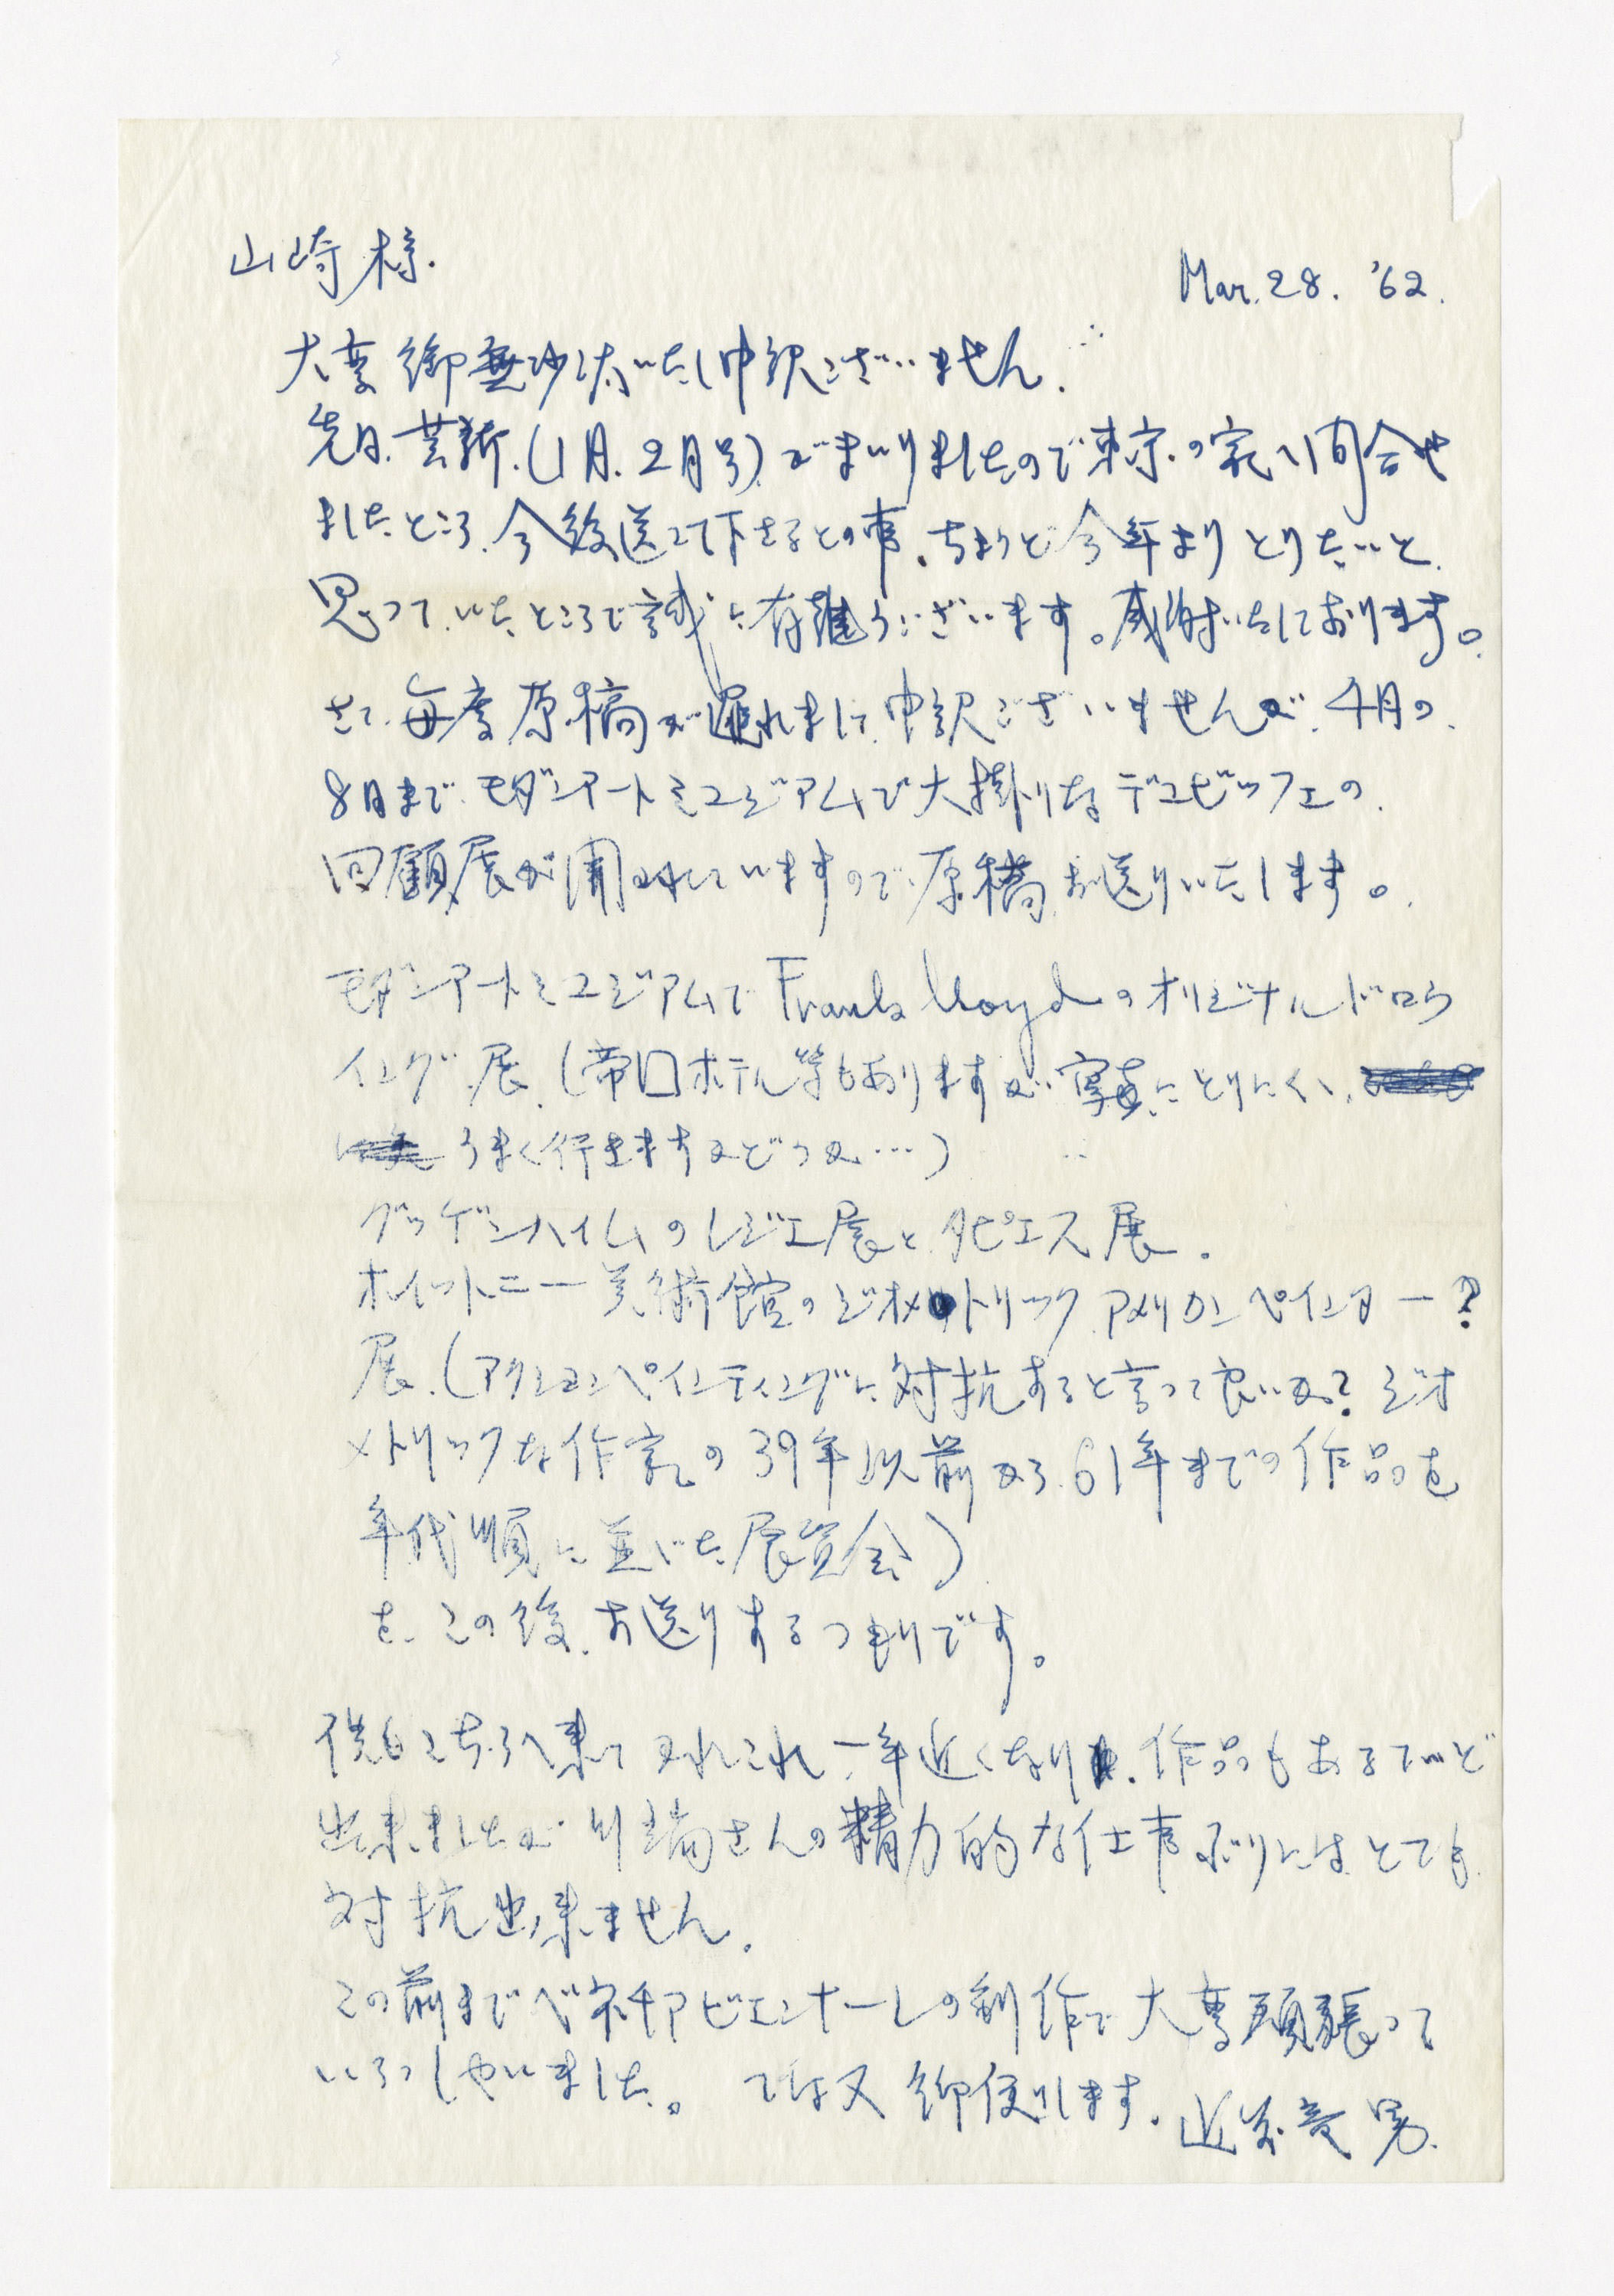 山崎様.
Mar. 28. '62.
大変御無沙汰いたし申訳ございません.
先日.芸新.(1月.2月号)がまいりましたので東京の家へ問合せ
ましたところ.今後送って下さるとの事.ちょうど今年よりとりたいと.
思って.いたところで誠に有難うございます。感謝いたしております。
さて.毎度原稿が遅れまして.申訳ございませんが.4月の.
8日まで.モダンアートミュジアムで大掛りなデュビッフェの.
回顧展が開かれていますので.原稿お送りいたします。
モダンアートミュジアムで Frank lloyd のオリジナルドロウ
イング展.(帝国ホテル等もありますが写真にとりにくく、
うまく行きますかどうか…)
グッゲンハイムのレジエ展と.タピエス展.
ホイットニー美術館のジオメトリック.アメリカンペインター?
展.(アクションペインティングに対抗すると言って良いか?ジオ
メトリックな作家の39年以前から.61年までの作品を
年代順に並べた展覧会)
を.この後.お送りするつもりです。
僕もこちらへ来てかれこれ一年近くなり.作品もあるていど
出来ましたが.川端さんの精力的な仕事ぶりにはとても
対抗出来ません.
この前までベネチアビエンナーレの制作で大変頑張って
いらっしゃいました。 では又御便りします.
近藤竜男.